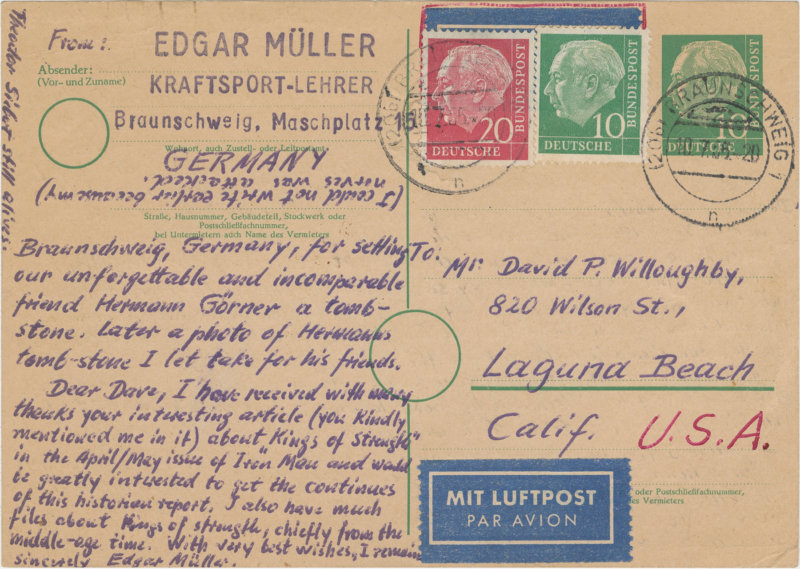 From:
EDGAR MÜLLER
Absender:
(Vor- und Zuname)
KRAFTSPORT-LEHRER
Braunschweig, Maschplatz 15
Wohnort, auch Zustell- oder Leitpostamt
GERMANY
(I could not write earlier because my
nerves was attacked.
Straße, Hausnummer, Gebäudeteil, Stockwerk oder
Postschließfachnummer,
bei Untermietern auch Name des Vermieters
Braunschweig, Germany, for setting
our unforgettable and incomparable
friend Hermann Görner a tomb-
stone. Later a photo of Hermanns
tomb-stone I let take for his friends.
Dear Dave, I have received with many
thanks your interesting article (you kindly
mentioned me in it) about "Kings of Strength"
in the April/May issue of "Iron Man" and would
be greatly interested to get the continues
of this historian report. I also have much
files about Kings of strength, chiefly from the
middle-age time. With very best wishes, I remain
sincerely Edgar Müller.
Theodor Siebert still alives.
20
DEUTSCHE
BUNDESPOST
10
DEUTSCHE
BUNDESPOST
10
DEUTSCHE
BUNDESPOST
(20b) BRAUNSCHWEIG 1
n
n
To.
Mr. David P. Willoughby,
820 Wilson St.,
Laguna Beach
Calif. U.S.A.
MIT LUFTPOST
PAR AVION
oder Postschließfachnummer,
des Vermieters